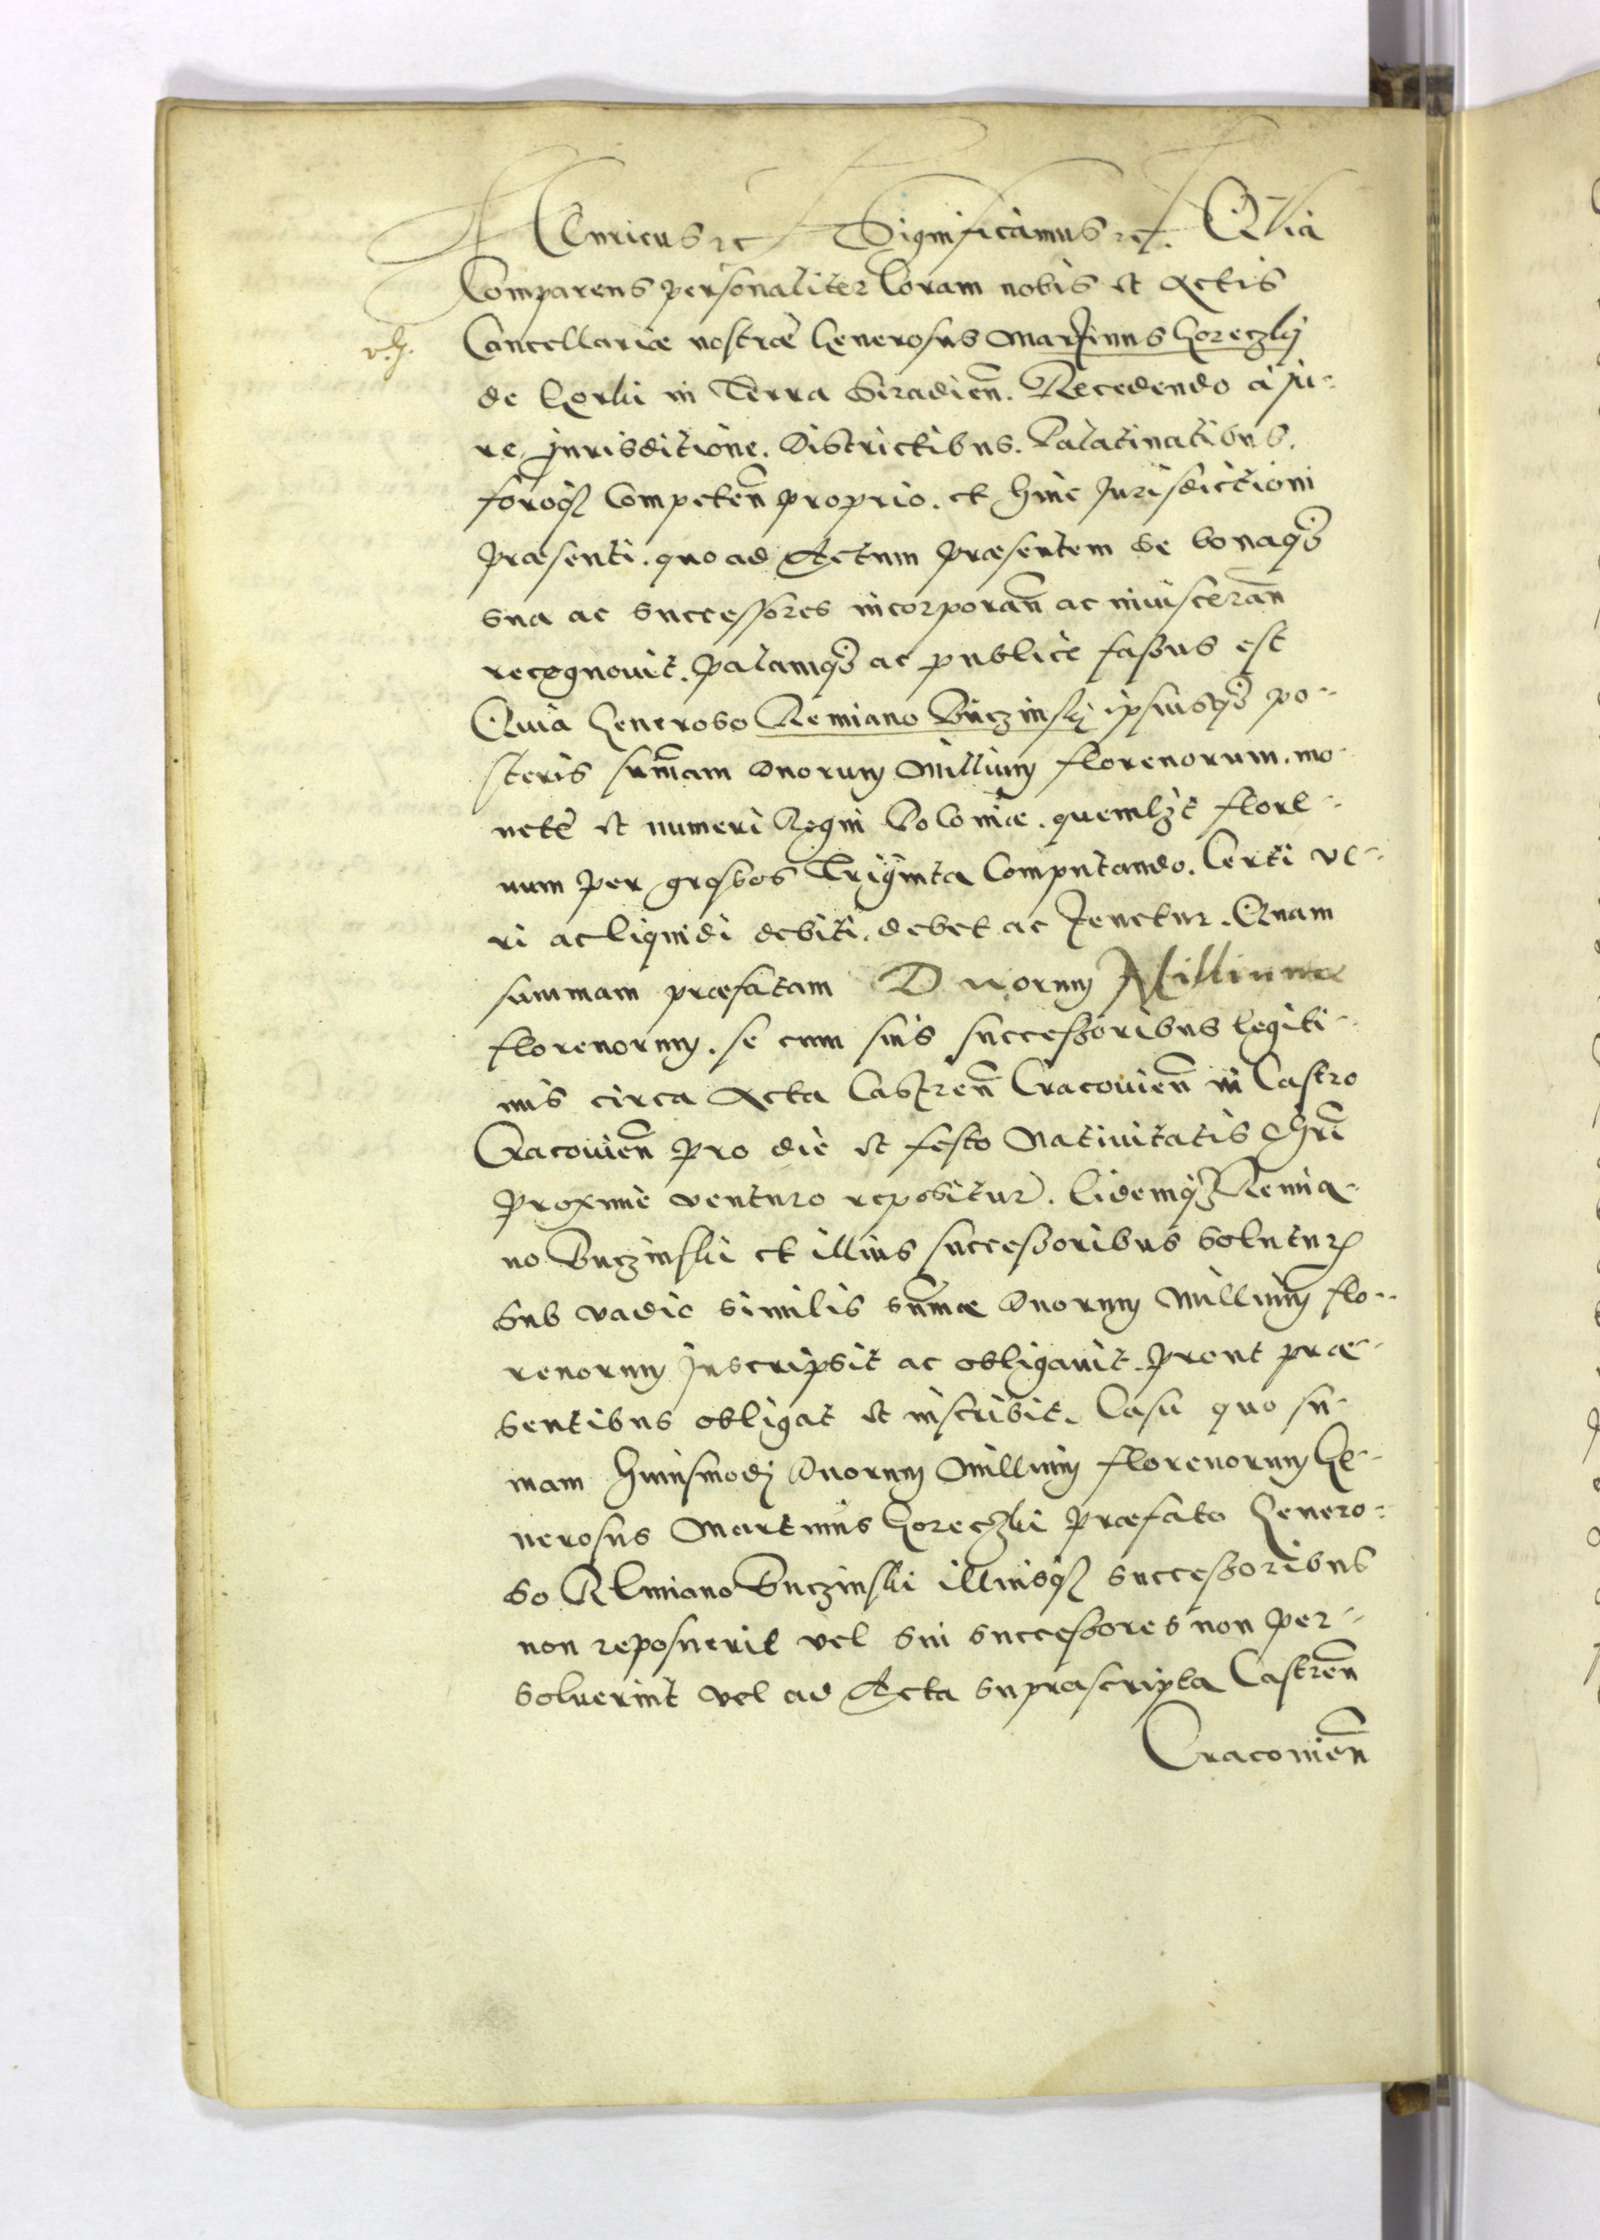 HEnricus etc Significamus etc. QVia
Comparens personaliter Coram nobis et Actis
Cancellariæ nostræ Generosus Martinus Goreczky
de Gorki in Terra Siradien̄. Recedendo à ju-
re Jurisditione. Districtibus. Palatinatibus.
foroq₃ Competen̄ proprio. et hinc Jurisdictioni
Præsenti. quo ad Actum præsentem se bonaq₃
sua ac successores incorporan̄ ac inuisceran̄
recognouit. palamq₃ ac publice fassus est
Quia Generoso Remiano Buczinsky ipsiusq₃ po-
steris sum̄am Duorum Millium florenorum. mo-
netè et numeri Regni Poloniæ. quemlzt flore-
num per grossos Triginta Computando. Certi ve-
ri ac liquidi debiti. debet ac Tenetur. Quam
summam præfatam Duorum Millium
florenorum. se cum suis successoribus legiti-
mis circa Acta Castren̄ Cracouien̄ in Castro
Cracouien̄ pro die et festo Natiuitatis Chri̅
proxime venturo repositur̄. Eidemq₃ Remia-
no Buczinski et illius successoribus solutur̄
Sub vadio similis sum̄æ Duorum Millium flo-
renorum Inscripsit ac obligauit. Prout præ-
sentibus obligat et inscribit. Casu quo su-
mam huiusmodj Duorum Millium florenorum Ge-
nerosus Martinus Goreczki Præfato Genero-
so Remiano Buczinski illiusq₃ successoribus
non reposuerit vel sui successores non per-
soluerint vel ad Acta suprascripta Castren̄
Cracouien̄